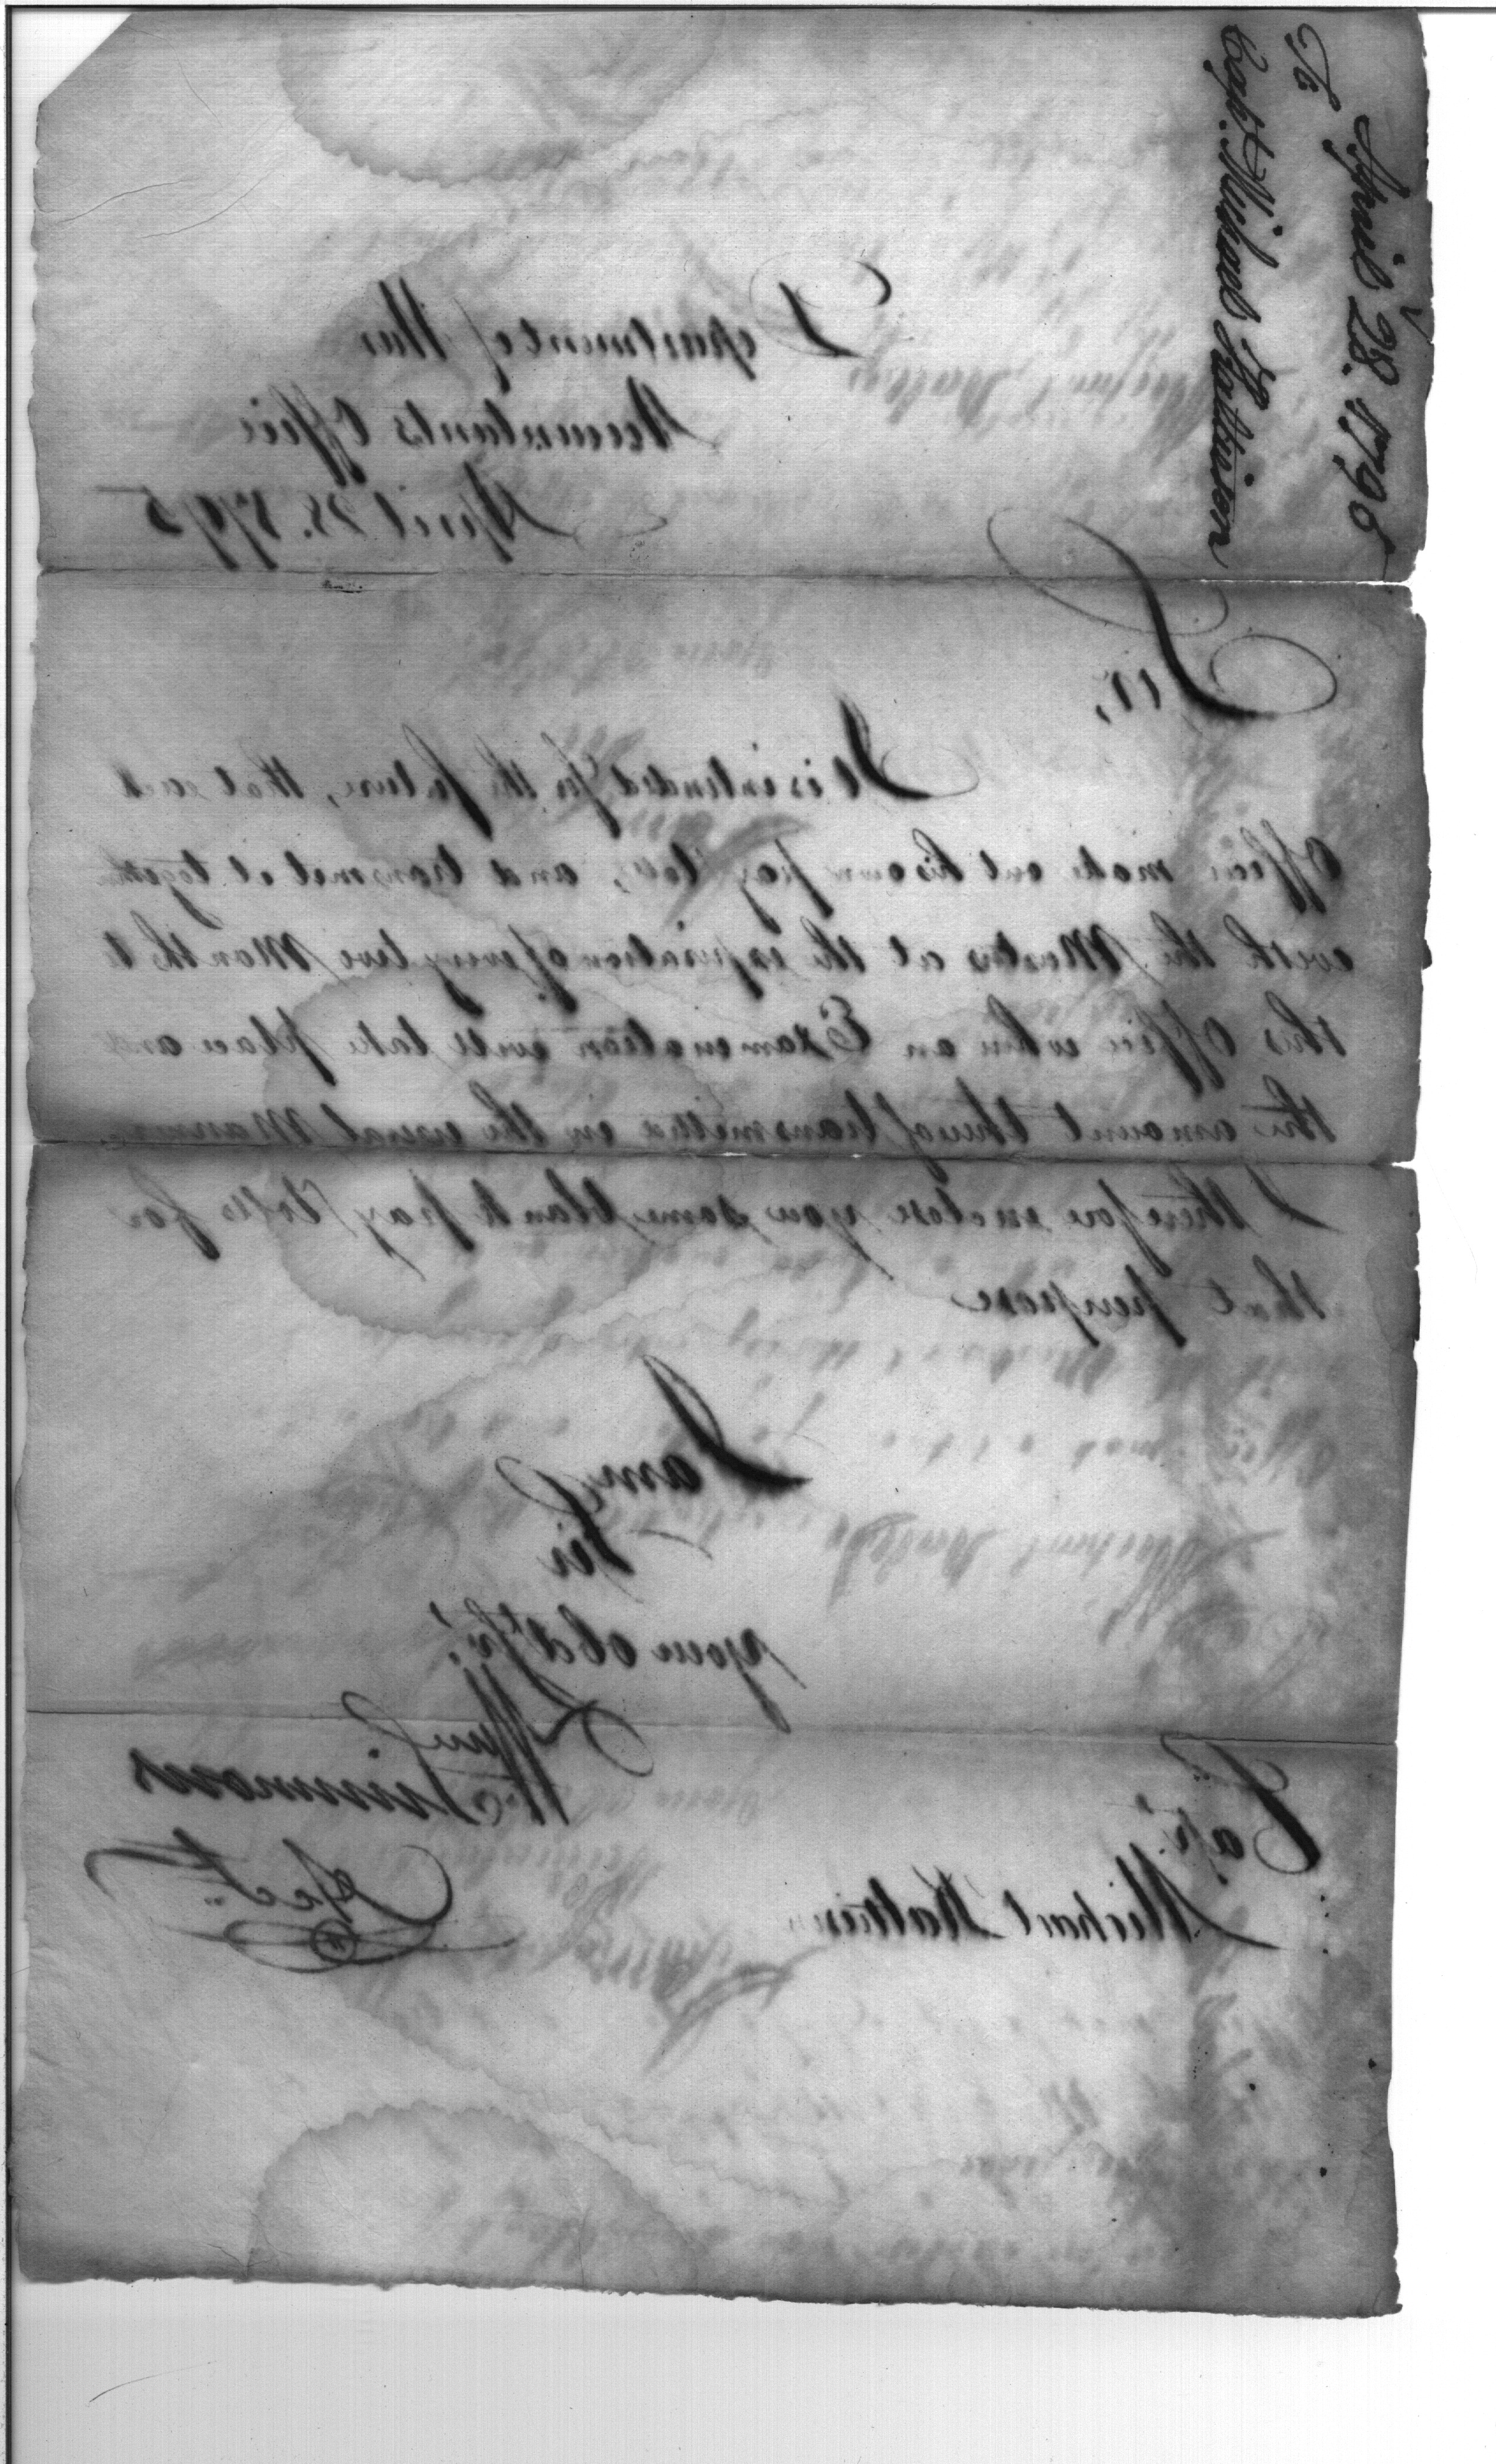 April 28. 1795
To
Capt. Michael Kalteison
Department of War
Accountants Office
April 28. 1795
Sir,
It is intended for the future, that each
Officer make out his own pay Rolls, and transmit it together
with the Musters at the expiration of every two Months to
this Office when an Examination will take place and
the amount thereof transmitted in the usual Manner.
I therefore enclose you some blank pay Rolls for
that purpose
I am
Sir
your obdt. Sert.
Wm. Simmons
Acct.
Capt.
Michael Kalteison